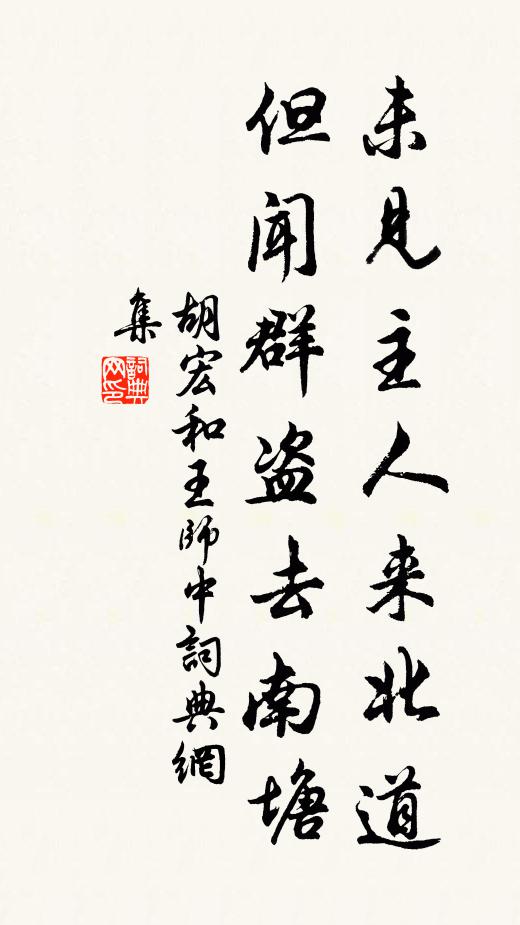 未見主人来北道
但聞群盗去南塘
胡宏和王師中詞典網
集
詞典
网印